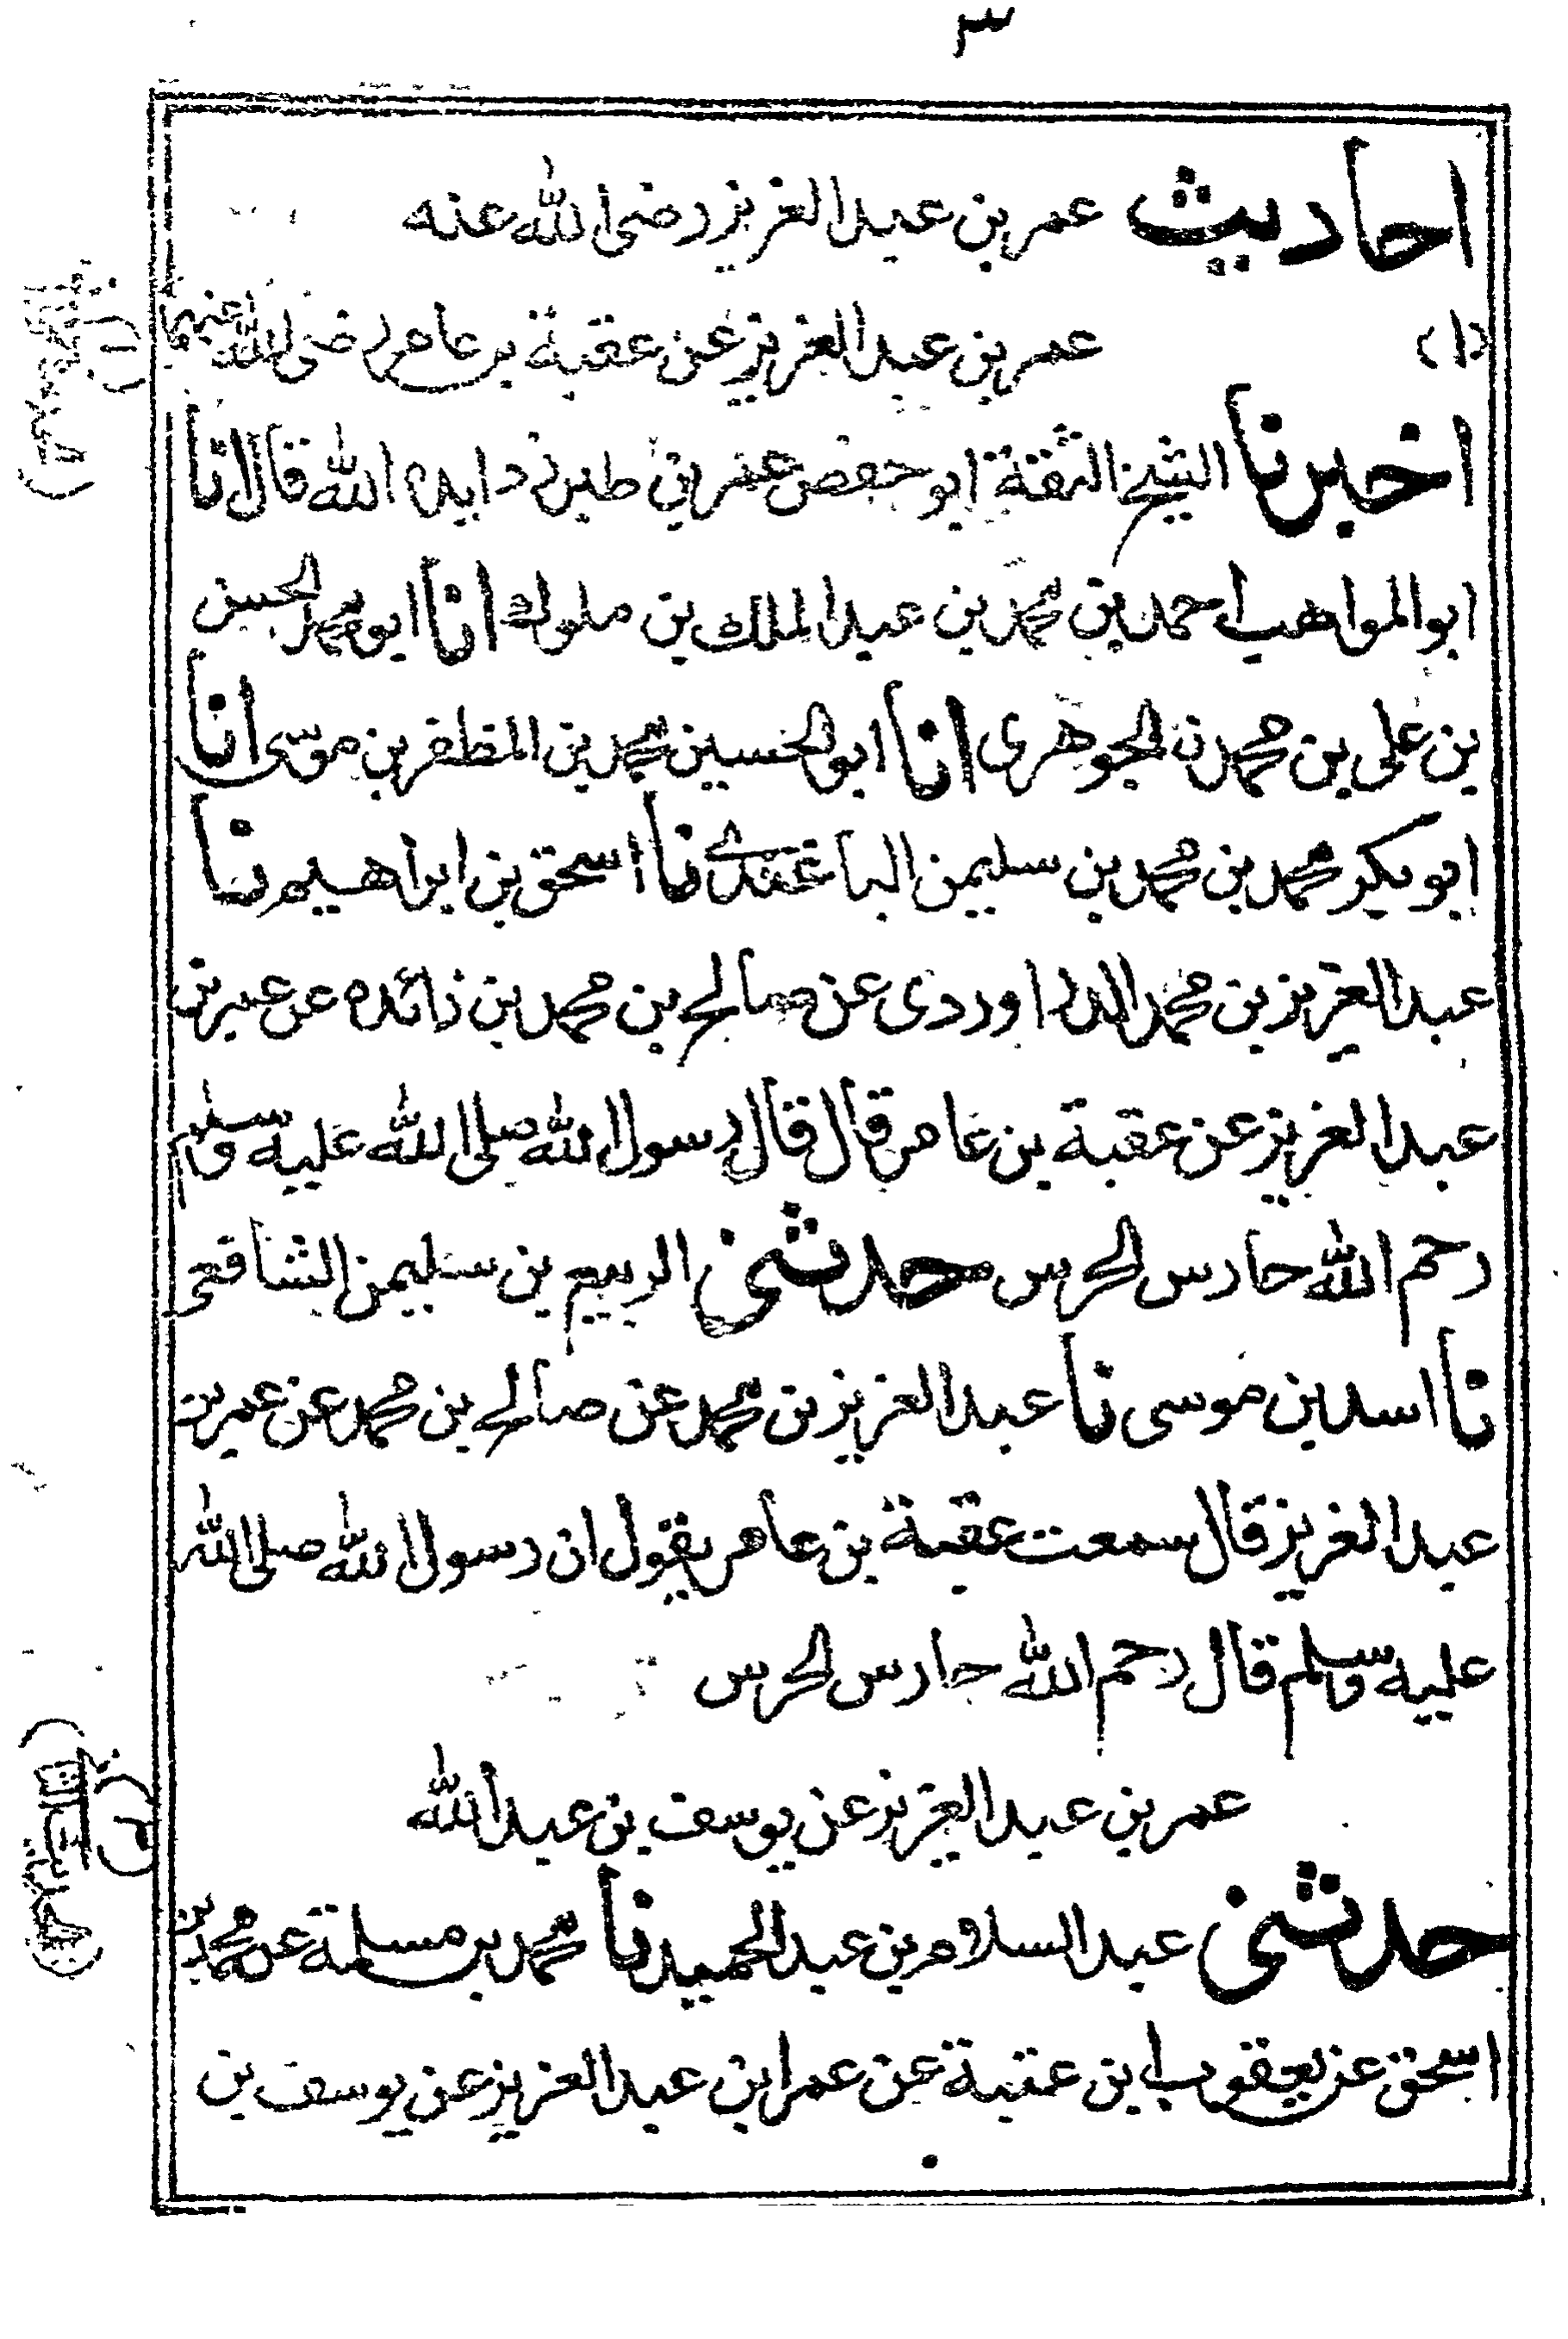 ٣
احاديث عمر بن عبد العزيز رضى الله عنه
(١) عمر بن عبد العزيز عن عقبة بن عامر رضى الله عنهما
اخبرنا الشيخ الثقة ابو حفص عمر بن طبرزد ايده الله قال انا
ابو المواهب احمد بن محمد بن عبد الملك بن ملوك انا ابو محمد الحسن
بن على بن محمد ن الجوهرى انا ابو الحسين محمد بن المظفر بن موسى انا
ابو بكر محمد بن محمد بن سليمن الباغندى نا اسحق بن ابراهيم نا
عبد العزيز بن محمد الدراوردى عن صالح بن محمد بن زائده عن عمر بن
عبد العزيز عن عقبة بن عامر قال قال رسول الله صلى الله عليه وسلم
رحم الله حارس الحرس حدثنى الربيع بن سليمن الشافعى
نا اسد بن موسى نا عبد العزيز بن محمد عن صالح بن محمد عن عمر بن
عبد العزيز قال سمعت عقبة بن عامر يقول ان رسول الله صلى الله
عليه وسلم قال رحم الله حارس الحرس
عمر بن عبد العزيز عن يوسف بن عبد الله
حدثنى عبد السلام بن عبد الحميد نا محمد بن مسلمة عن محمد بن
اسحق عن يعقوب ابن عتبة عن عمر ابن عبد العزيز عن يوسف بن